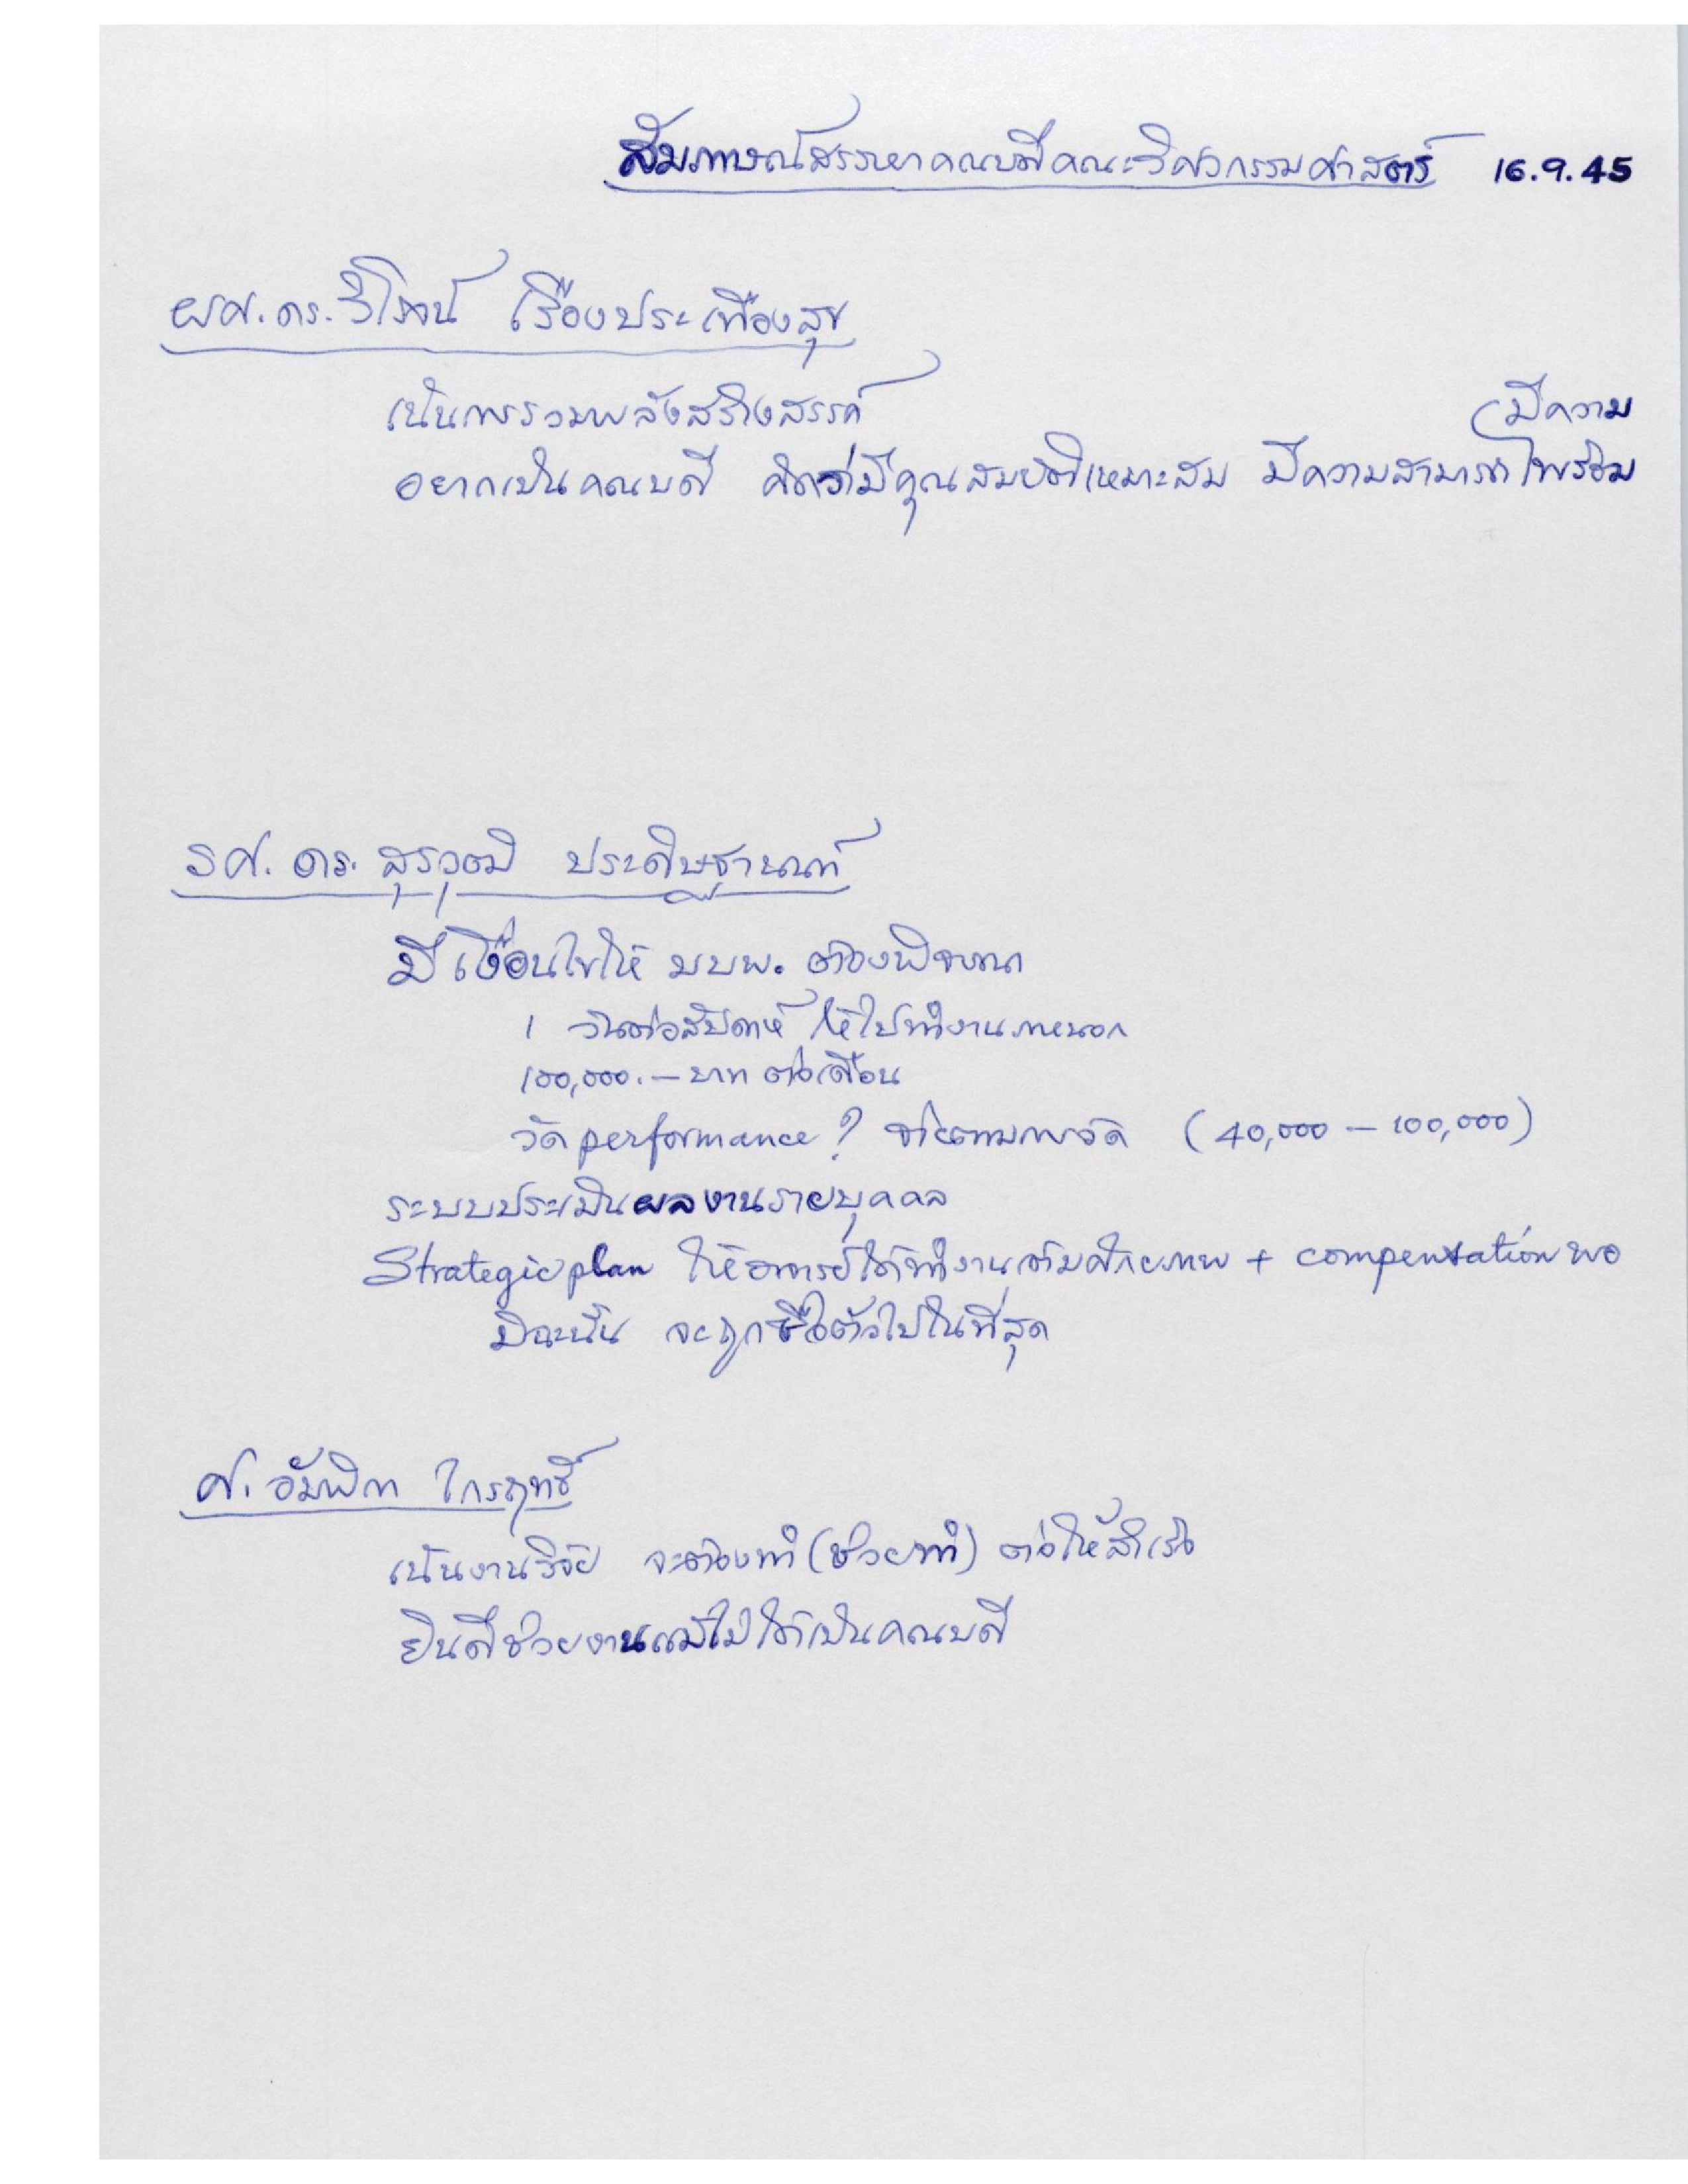 สัมภาษณ์สรรหาคณบดีคณะวิศวกรรมศาสตร์ 16.9.45
ผศ.ดร.วิโรจน์ เรืองประเทืองสุข
เน้นการรวมพลังสร้างสรรค์
อยากเป็นคณบดี คิดว่ามีคุณสมบัติเหมาะสม มีความสามารถ (มีความพร้อม
รศ.ดร. สุรวุฒิ ประดิษฐานนท์
มีเงื่อนไขให้ มบพ. ต้องพิจารณา
1 วันต่อสัปดาห์ ให้ไปทำงานภายนอก
100,000.- บาท ต่อเดือน
วัด performance? จ่ายตามการวัด (40,000 – 100,000)
ระบบประเมินผลงานรายบุคคล
Strategic plan ให้อาจารย์ได้ทำงานเต็มศักยภาพ + compensation พอ
มิฉะนั้น จะถูกซื้อตัวไปในที่สุด
ศ. อัมพิกา ไกรฤทธิ์
เน้นงานวิจัย จะต้องทำ (ช่วยทำ) ต่อให้สำเร็จ
ยินดีช่วยงานแม้ไม่ได้เป็นคณบดี